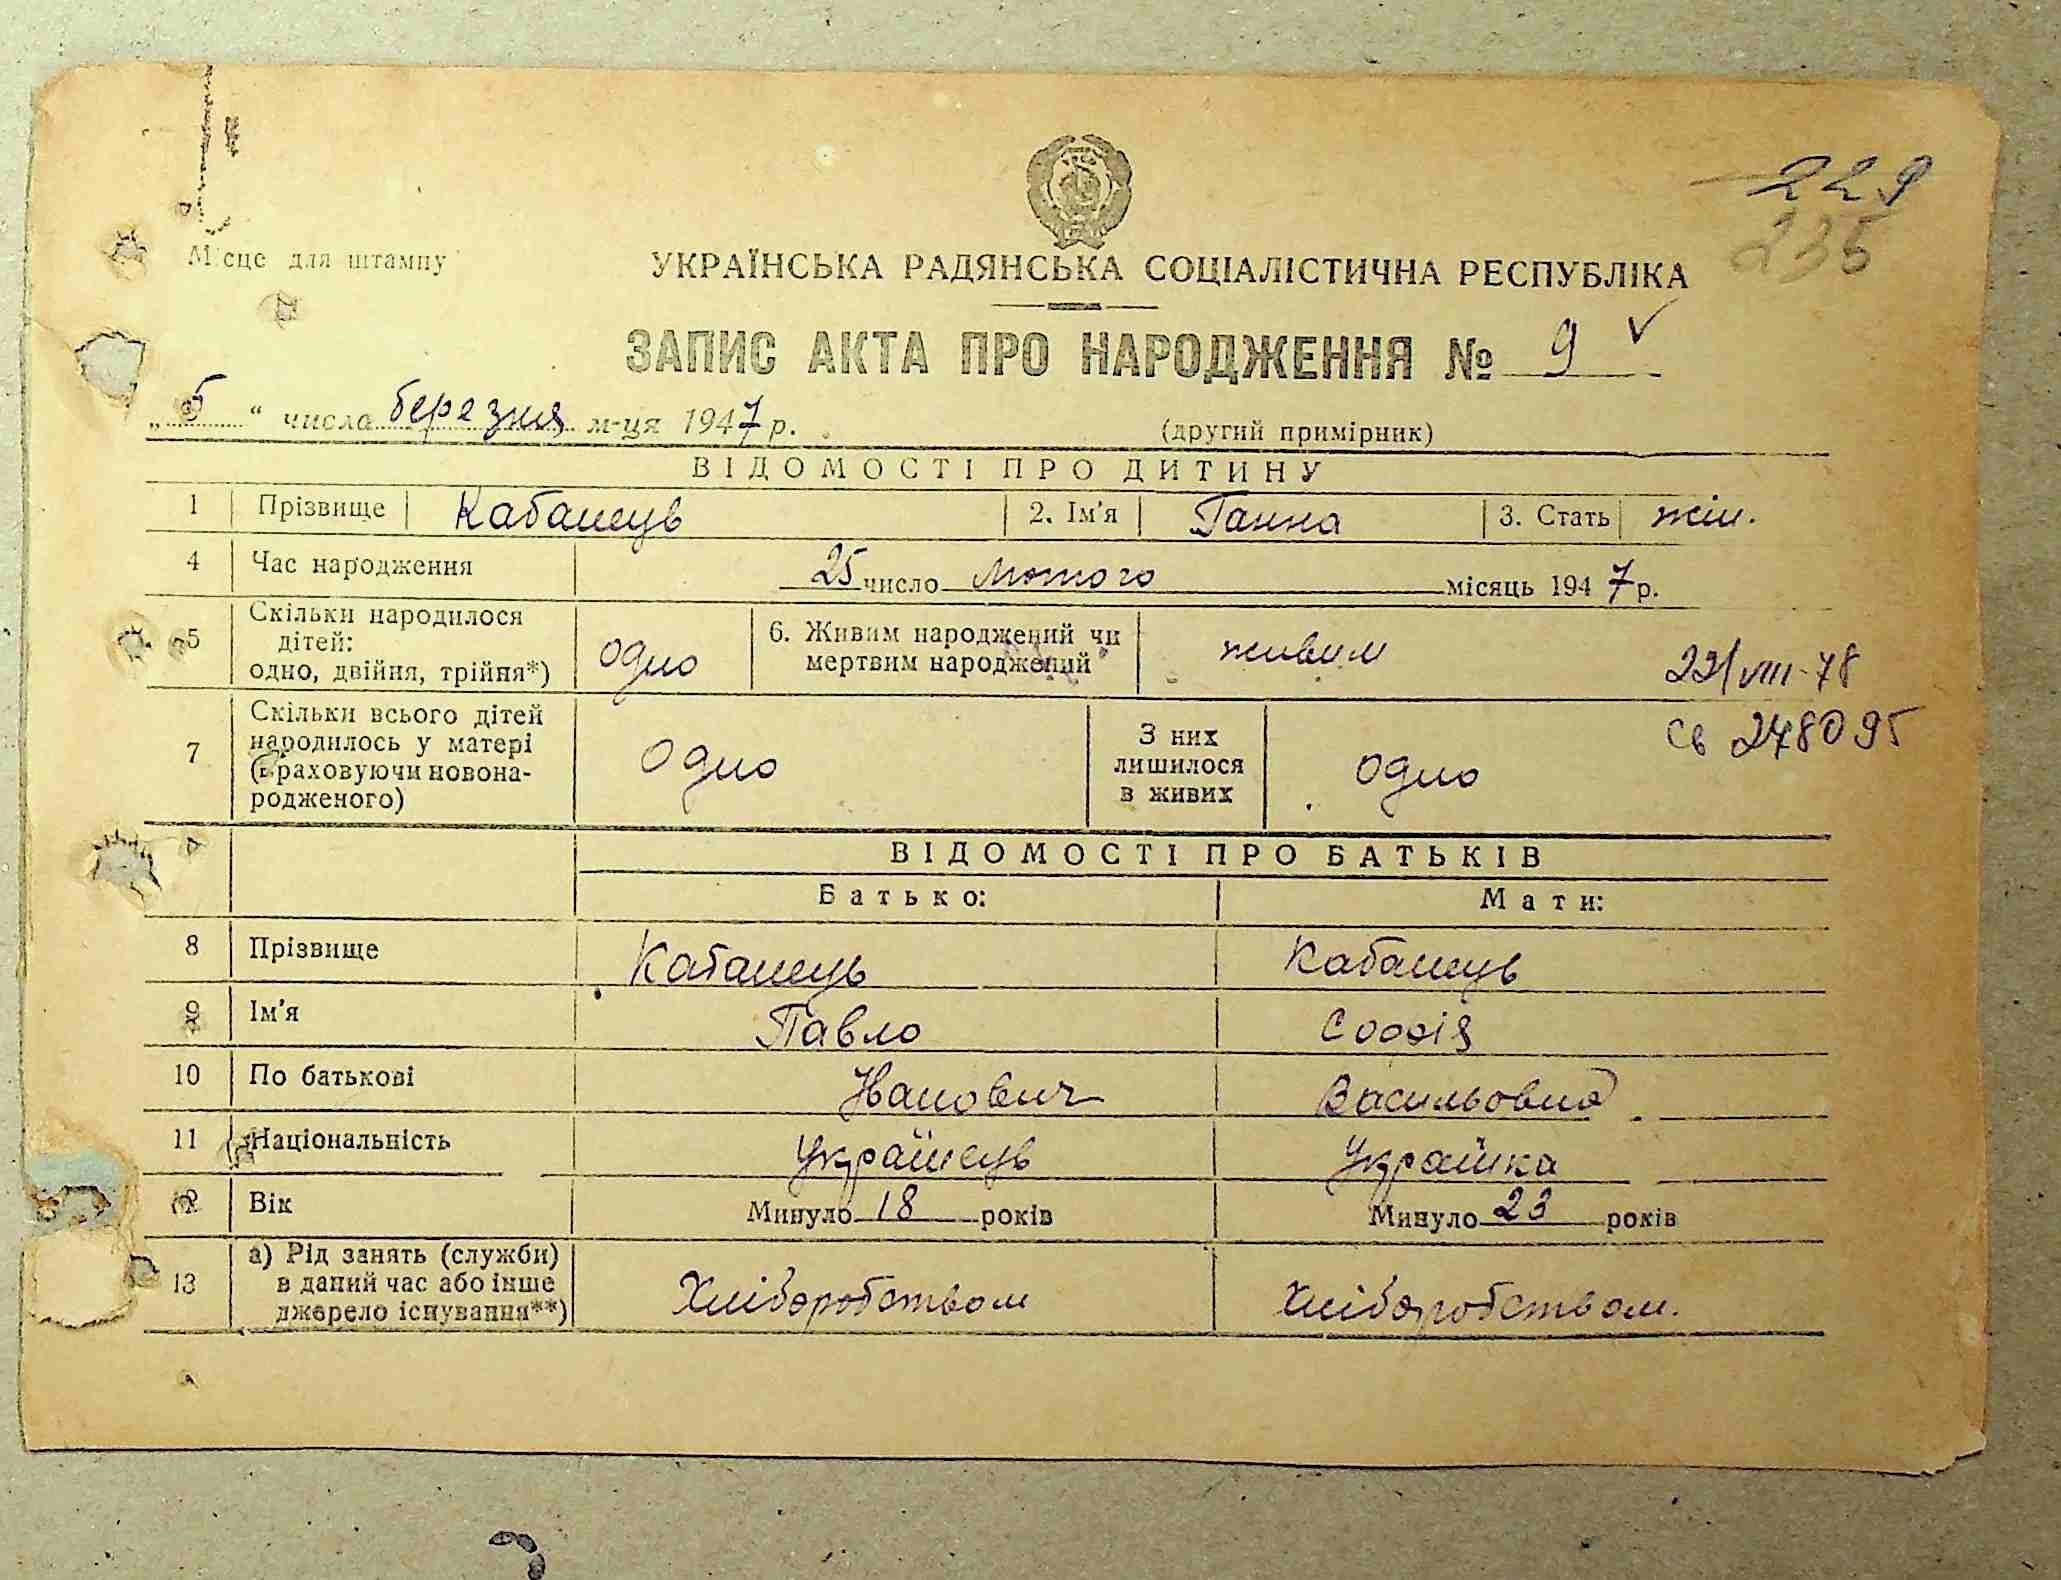 229
235
Місце для штампу
УКРАЇНСЬКА РАДЯНСЬКА СОЦІАЛІСТИЧНА РЕСПУБЛІКА
ЗАПИС АКТА ПРО НАРОДЖЕННЯ № 9 V
„ 5 “ числа березня м-ця 1947 р.
(другий примірник)
ВІДОМОСТІ ПРО ДИТИНУ
1 Прізвище Кабанець 2. Ім'я Ганна 3. Стать жін.
4 Час народження 25 число Лютого місяць 1947 р.
5 Скільки народилося дітей: одно, двійня, трійня*) одно 6. Живим народжений чи мертвим народжений живим
22/VIII-78
Св 248095
7 Скільки всього дітей народилось у матері (враховуючи новонародженого) Одно З них лишилося в живих одно
ВІДОМОСТІ ПРО БАТЬКІВ
Батько: Мати:
8 Прізвище Кабанець Кабанець
9 Ім'я Павло Софія
10 По батькові Іванович Васильовна
11 Національність Українець Українка
12 Вік Минуло 18 років Минуло 23 років
13 а) Рід занять (служби) в даний час або інше джерело існування**) Хліборобством Хліборобством.